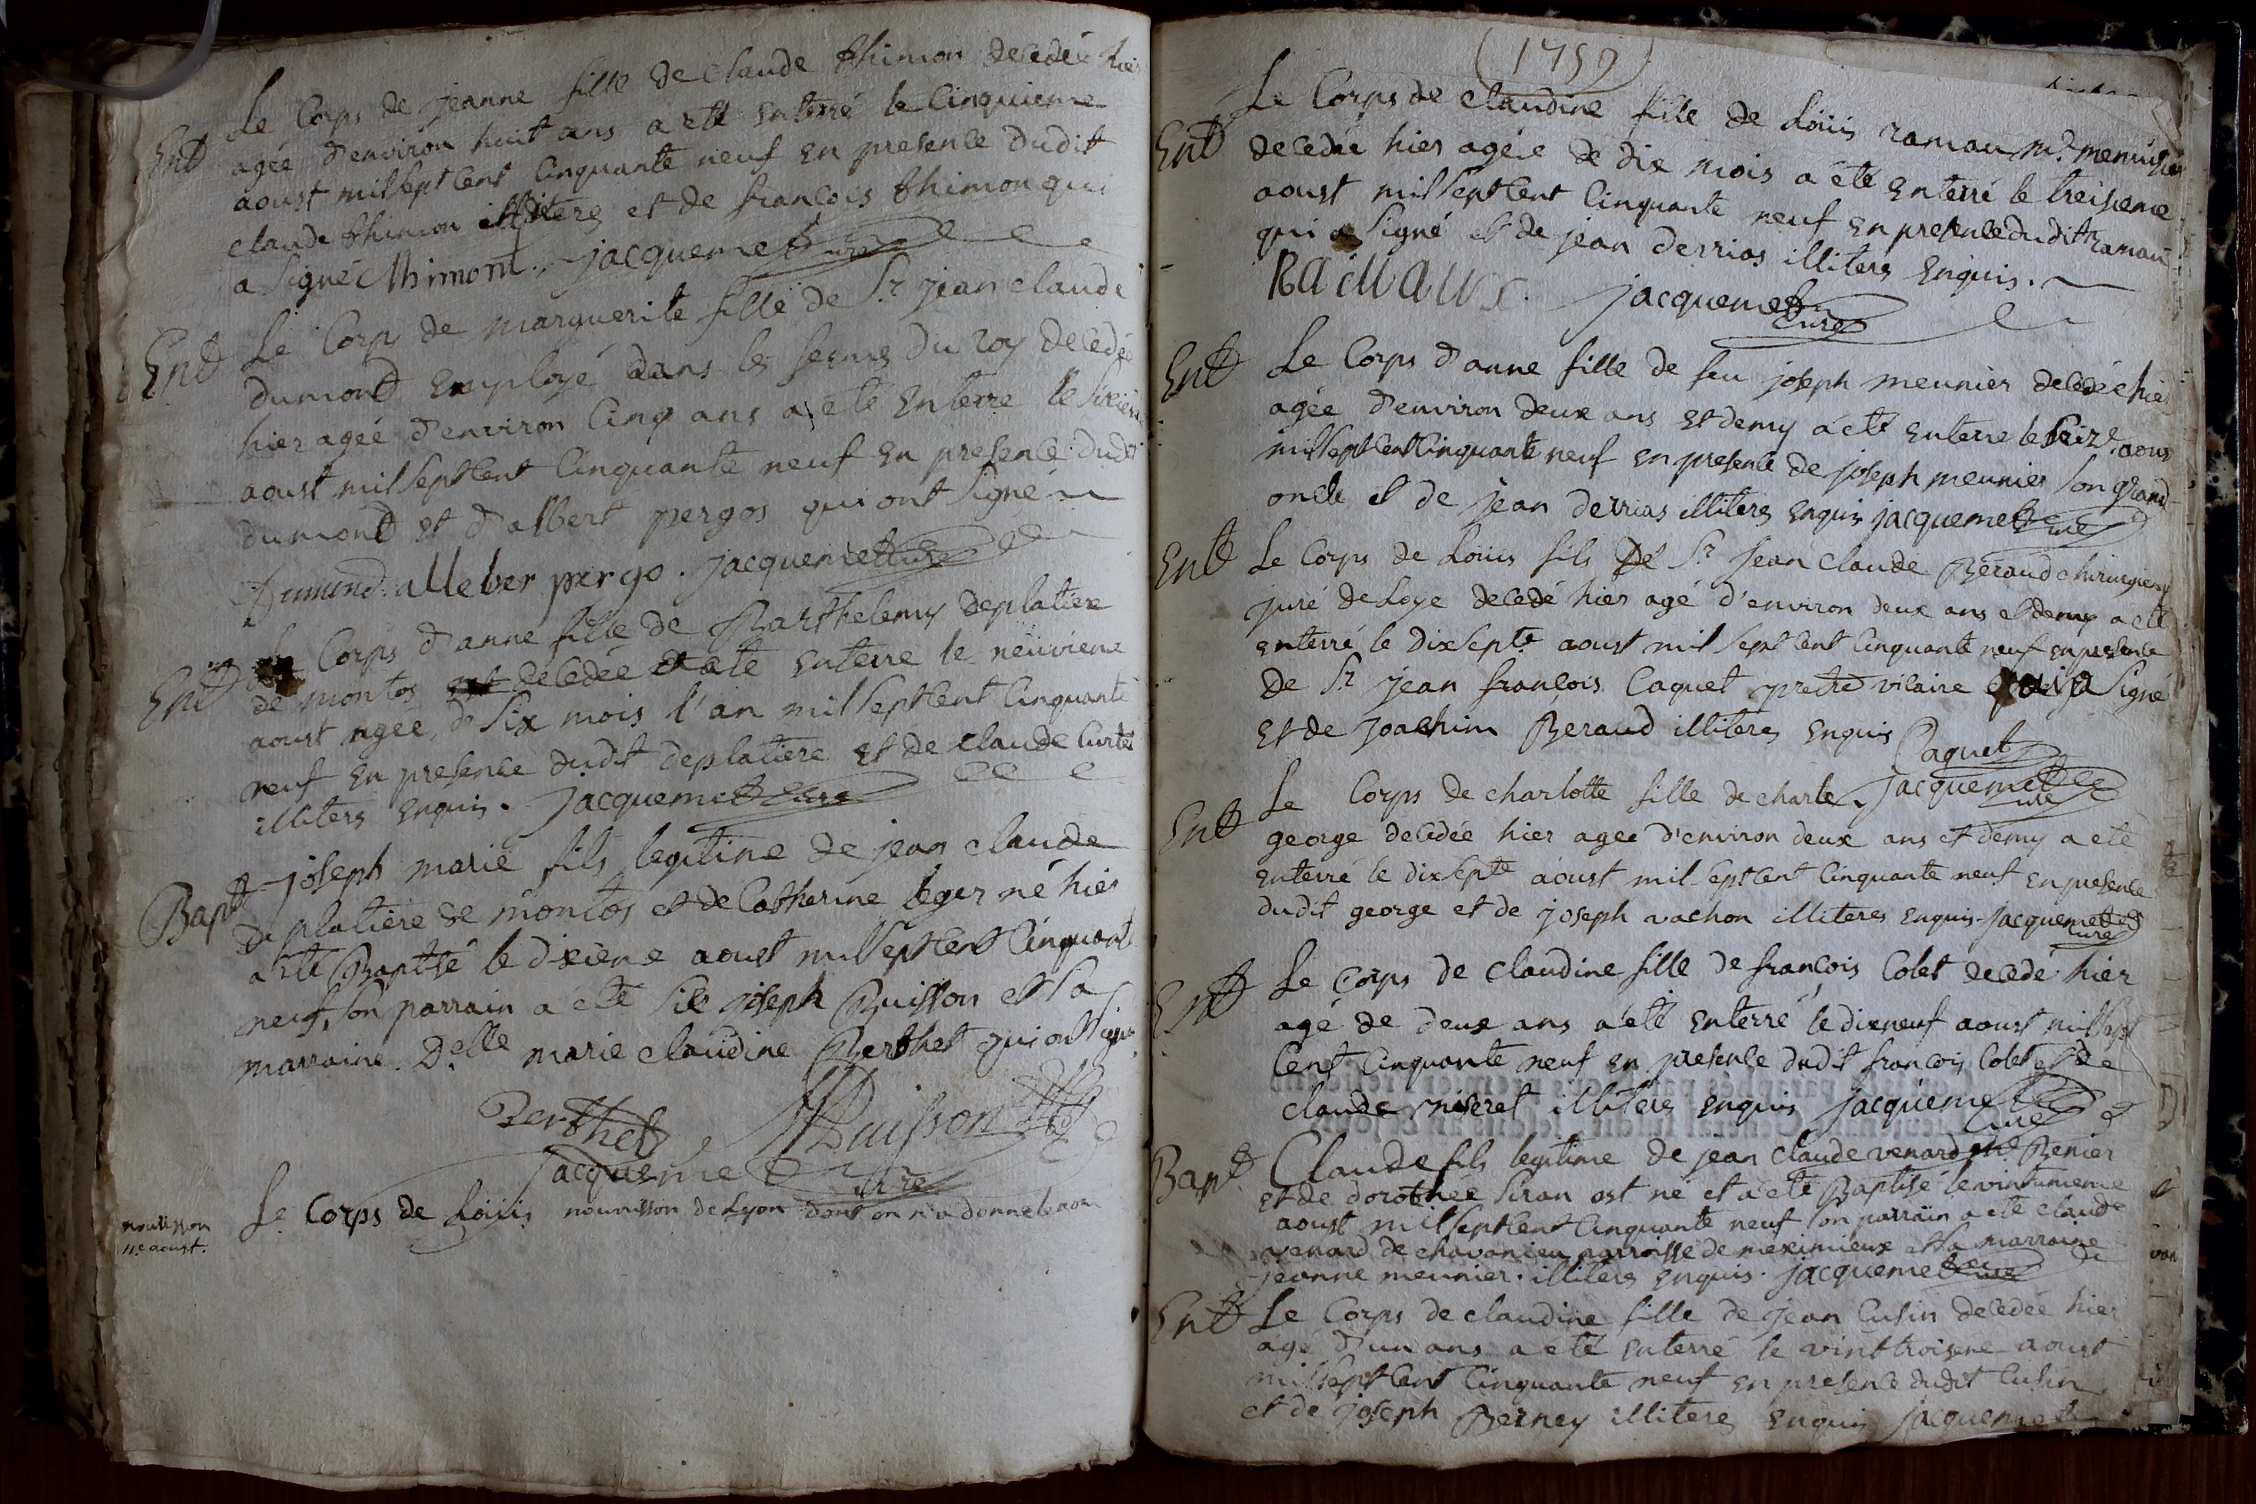 Entt Le Corps de jeanne fille de claude thimon decedée hier
agée d'environ huit ans a ette enterré le cinquieme
aoust mil sept cent cinquante neuf en presence dudit
claude thimon illiteré et de françois thimon qui
a signé Thimont. jacquemet curé
Entt Le Corps de marguerite fille de Sr jean claude
dumond employé dans les fermes du roy decedée
hier agée d'environ cinq ans a eté enterre le sixiem
aoust mil sept cent cinquante neuf en presence dudit
dumond et d'albert pergos qui ont signé
Dumond. alleber pergo. jacquemet curé
Entt Le Corps d'anne fille de Barthelemy deplatiere
de montos decedée et a ete enterre le neuvieme
aoust agee de six mois l'an mil sept cent cinquante
neuf en presence dudit deplatiere et de claude curtet
illiteres enquis. jacquemet curé
Baptt joseph marie fils legitime de jean claude
deplatiere de montos et de Catherine leger né hier
a ete Baptisé le dixieme aoust mil sept cent cinquante
neuf, son parrain a eté sieur joseph Buisson et sa
marraine Delle marie claudine Berthet qui ont signé
Berthet Buisson
jacquemet curé
nourisson
11e aoust.
Le Corps de Loüis nourisson de Lyon dont on n'a donné le nom
(1759)
Entt Le Corps de claudine fille de Loüis ramau md menuisier
decedée hier agée de dix mois a été enterré le treisieme
aoust mil sept cent cinquante neuf en presence dudit ramau
qui a signé et de jean derrias illiteré enquis.
jacquemet curé
Entt Le Corps d'anne fille de feu joseph meunier decedée hier
agée d'environ deux ans et demy a eté enterre le seize aoust
mil sept cent cinquante neuf en presence de joseph meunier son grand
oncle et de jean derrias illiteres enquis jacquemet curé
Entt Le Corps de Loüis fils de Sr jean claude Beraud chirurgien
juré de Loye decedé hier agé d'environ deux ans et demy a eté
enterré le dix septe aoust mil sept cent cinquante neuf en presence
de Sr jean françois Caquet pretre vicaire qui a signé
et de joachim Beraud illiteres enquis Caquet
jacquemet curé
Entt Le Corps de charlotte fille de charle
george decedée hier agee d'environ deux ans et demy a eté
enterré le dix septe aoust mil sept cent cinquante neuf en presence
dudit george et de joseph vachon illiteres enquis jacquemet curé
Entt Le Corps de claudine fille de françois Colet decedé hier
agé de deux ans a eté enterré le dixneuf aoust mil sept
cent cinquante neuf en presence dudit françois Colet et de
claude miseret illiteres enquis jacquemet curé
Baptt Claude fils legitime de jean claude venard dit Benier
et de dorothée siran est né et a eté Baptisé le vintunieme
aoust mil sept cent cinquante neuf son parrain a eté claude
venard de chavanieu parroisse de meximieux et sa marraine
jeanne meunier. illiteres enquis. jacquemet curé
Entt Le Corps de claudine fille de jean Cusin decedée hier
agé d'un ans a eté enterré le vinttroisieme aoust
mil sept cent cinquante neuf en presence dudit Cusin
et de joseph Berney illiteres enquis jacquemet